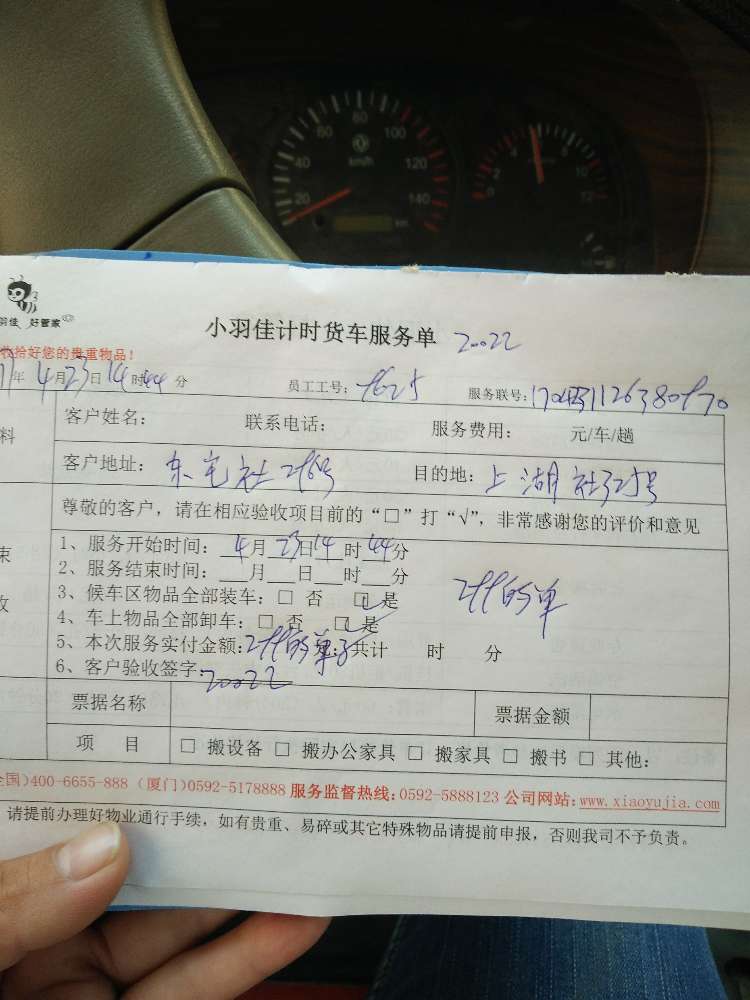 小羽佳计时货车服务单 20022
羽佳 好管家
收拾好您的贵重物品！
年 4月23日14时44分 员工工号： 服务联号：
客户姓名： 联系电话： 服务费用： 元/车/趟
客户地址：东宅社 目的地：上湖社325号
尊敬的客户，请在相应验收项目前的“□”打“√”，非常感谢您的评价和意见
1、服务开始时间：4月23日14时44分
2、服务结束时间：___月___日___时___分
3、候车区物品全部装车：□ 否 ☑是
4、车上物品全部卸车：□ 否 ☑是
的单
5、本次服务实付金额： 共计 时 分
6、客户验收签字：20022
票据名称 票据金额
项 目 □ 搬设备 □ 搬办公家具 □ 搬家具 □ 搬书 □ 其他：
全国)400-6655-888 (厦门)0592-5178888 服务监督热线：0592-5888123 公司网站：www.xiaoyujia.com
请提前办理好物业通行手续，如有贵重、易碎或其它特殊物品请提前申报，否则我司不予负责。
20 40 60 80 100 120 140
km/h
km
0 2 4 6 8 10 12